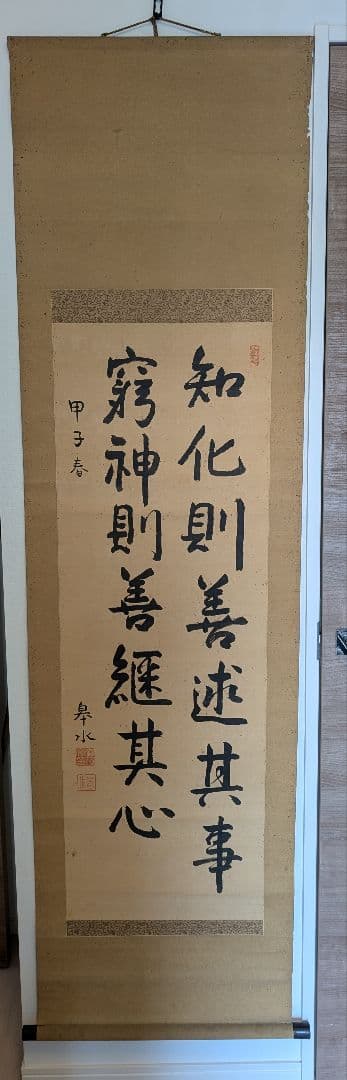 知化則善述其事
窮神則善継其心
甲子春
皋水